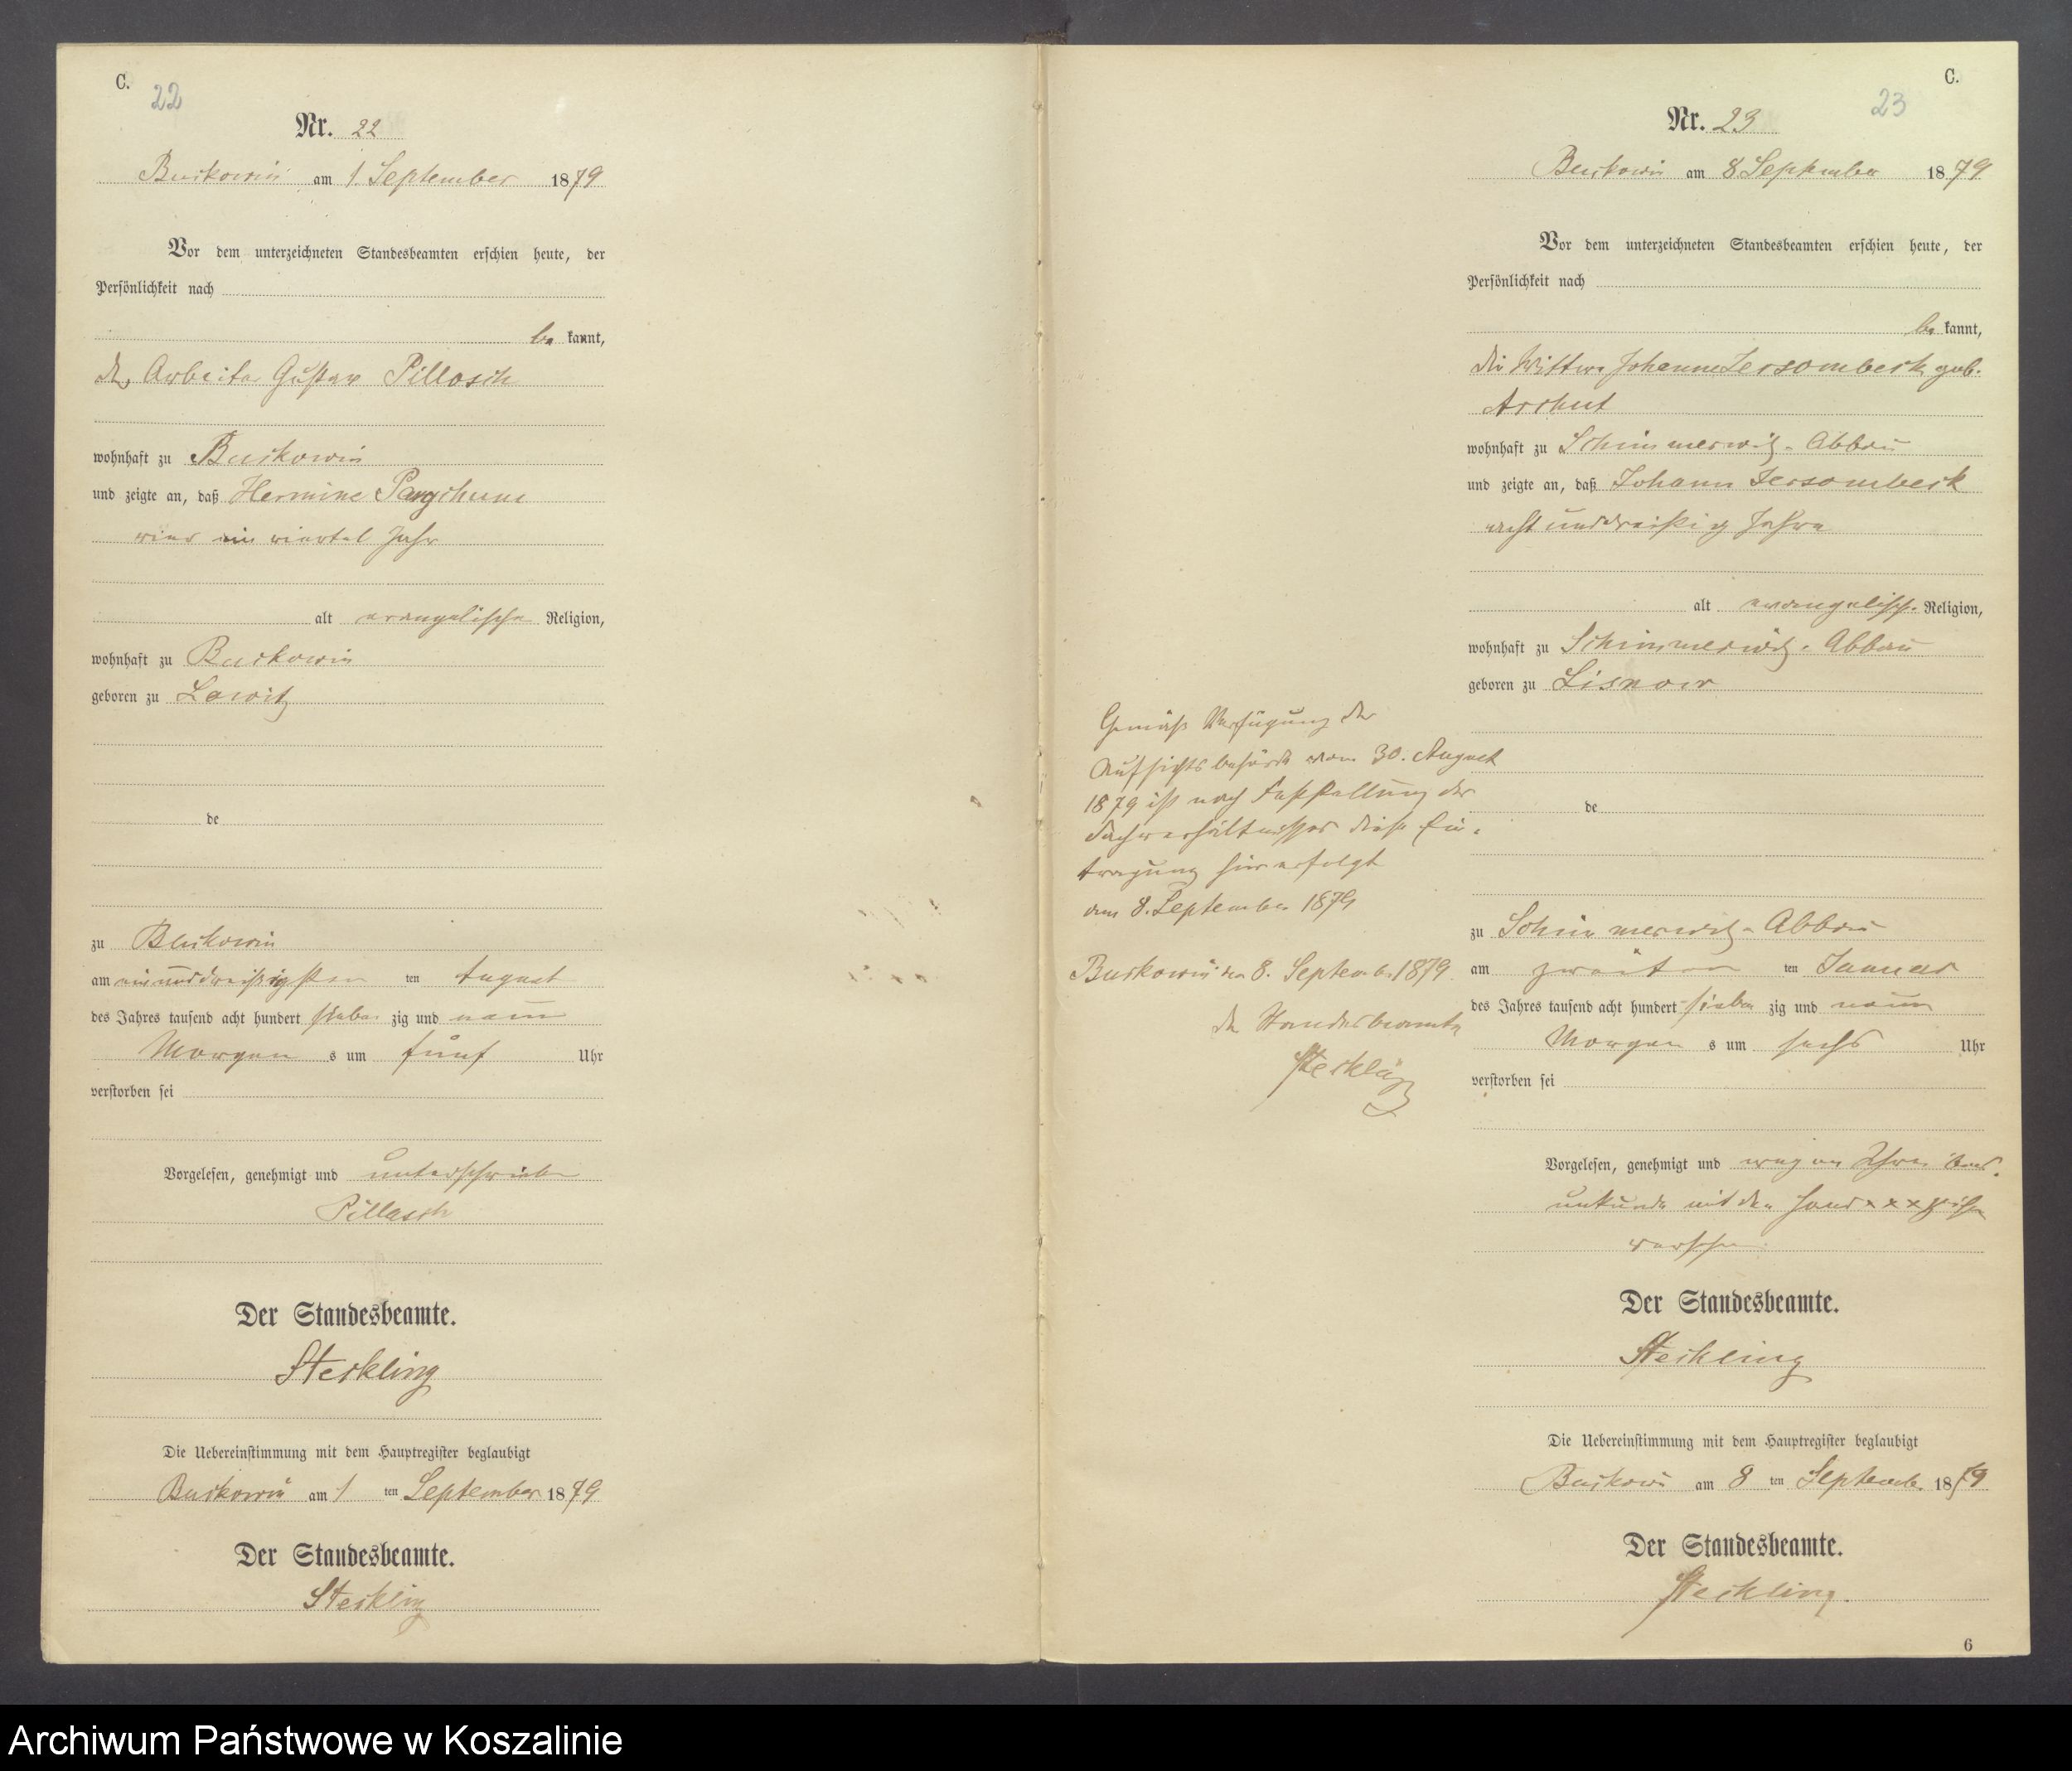 C.
22
Nr. 22
Buckowin am 1. September 1879
Vor dem unterzeichneten Standesbeamten erschien heute, der
Persönlichkeit nach
be kannt,
der Arbeiter Gustav Pillasch
wohnhaft zu Buckowin
und zeigte an, daß Hermine
ein viertel Jahr
alt evangelische Religion,
wohnhaft zu Buckowin
geboren zu Lowitz
de
zu Buckowin
am einunddreißigsten ten August
des Jahres tausend acht hundert sieben zig und neun
Morgen s um fünf Uhr
verstorben sei
Vorgelesen, genehmigt und unterschrieben
Pillasch
Der Standesbeamte.
Steckling
Die Uebereinstimmung mit dem Hauptregister beglaubigt
Buckowin am 1 ten September 1879
Der Standesbeamte.
Steckling
C.
23
Nr. 23
Buckowin am 8 September 1879
Vor dem unterzeichneten Standesbeamten erschien heute, der
Persönlichkeit nach
be kannt,
die Wittwe Johanne Jersombeck geb.
Aschut
wohnhaft zu Schimmerwitz-Abbau
und zeigte an, daß Johann Jersombeck
acht und dreißig Jahre
alt evangelisch. Religion,
wohnhaft zu Schimmerwitz-Abbau
geboren zu Lisnow
de
zu Schimmerwitz-Abbau
am zweiten ten Januar
des Jahres tausend acht hundert sieben zig und neun
Morgen s um sechs Uhr
verstorben sei
Vorgelesen, genehmigt und wegen
unkunde mit den Hand x x x zeichen
versehen
Der Standesbeamte.
Steckling
Die Uebereinstimmung mit dem Hauptregister beglaubigt
Buckowin am 8 ten September 1879
Der Standesbeamte.
Steckling.
6
Gemäß Verfügung der
Aufsichtsbehörde vom 30. August
1879 ist nach Feststellung der
Sachverhältnisses diese Ein-
tragung hier erfolgt
am 8. September 1879
Buckowin den 8. September 1879.
der Standesbeamte
Steckling
Archiwum Państwowe w Koszalinie